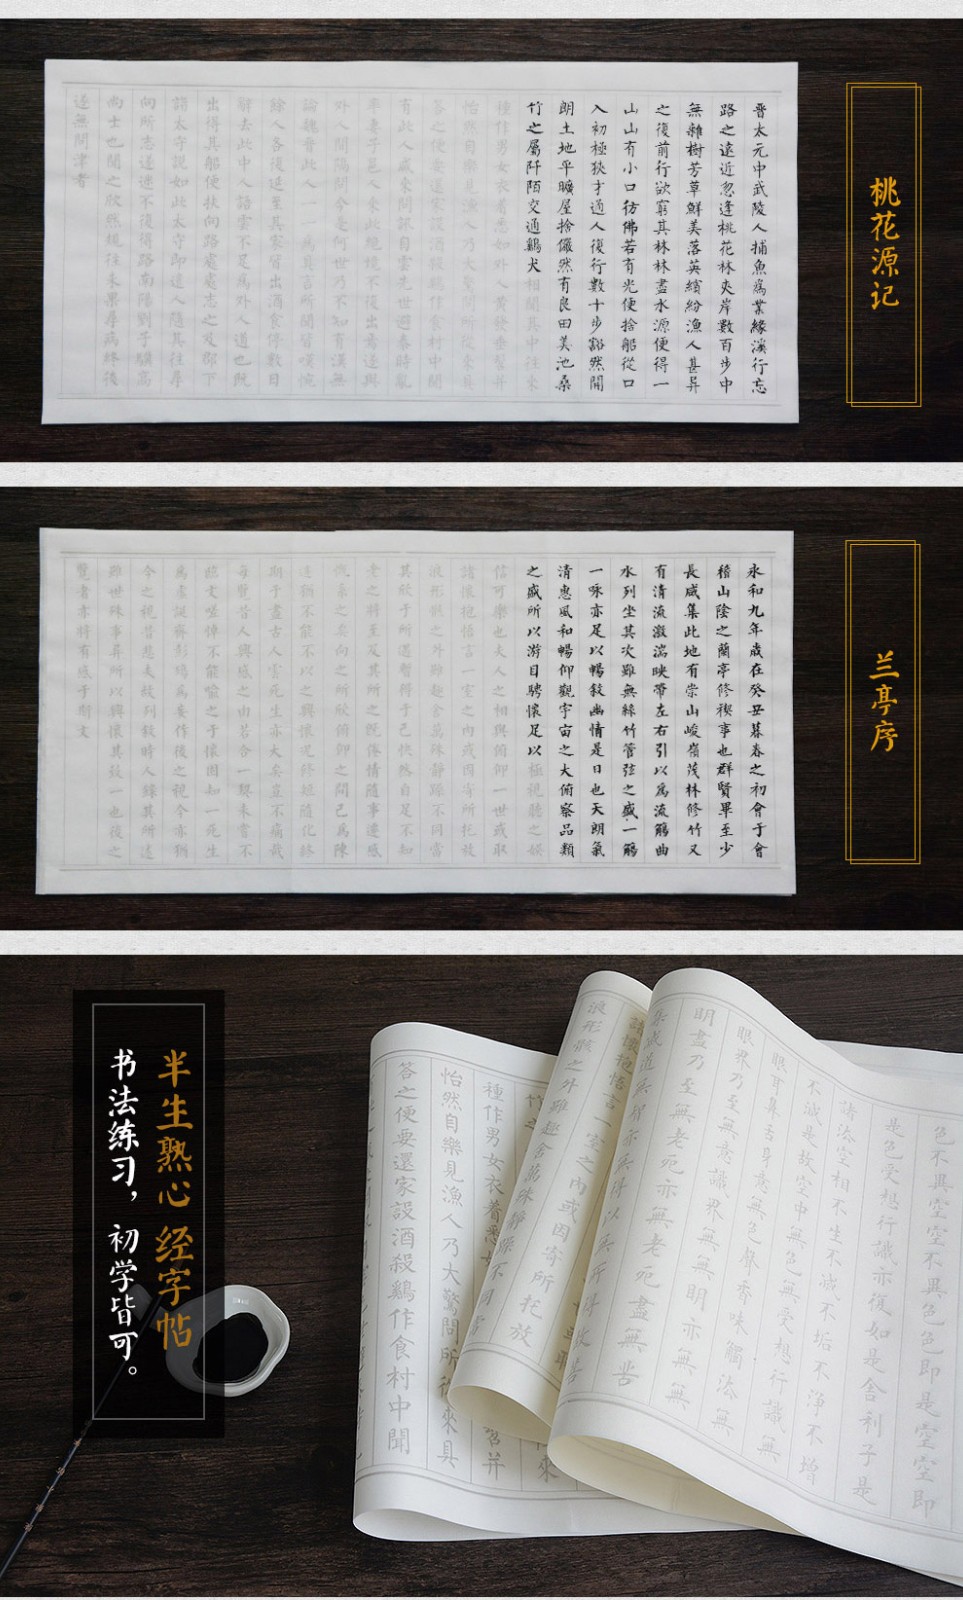 桃花源记
晋太元中武陵人捕魚為業緣溪行忘
路之遠近忽逢桃花林夾岸數百步中
無雜樹芳草鮮美落英繽紛漁人甚異
之復前行欲窮其林林盡水源便得一
山山有小口彷佛若有光便捨船從口
入初極狹才通人復行數十步豁然開
朗土地平曠屋捨儼然有良田美池桑
竹之屬阡陌交通鷄犬相聞其中往來
種作男女衣着悉如外
怡然自樂見漁人乃大驚問所從來具
答之便要還家設酒殺鷄作食村中聞
有此人咸來問訊自雲先世避秦時亂
率妻子邑人來此絕境不復出焉遂與
外人間隔問今是何世乃不知有漢無
論魏晋此人一一為具言所聞皆嘆惋
餘人各復延至其家皆出酒食停數日
辭去此中人語雲不足為外人道也既
出得其船便扶向路處處志之及郡下
詣太守說如此太守即遣人隨其往尋
向所志遂迷不復得路南陽劉子驥高
尚士也聞之欣然規往未果尋病終後
遂無問津者
兰亭序
永和九年歲在癸丑暮春之初會于會
稽山陰之蘭亭修稧事也群賢畢至少
長咸集此地有崇山峻嶺茂林修竹又
有清流激湍映帶左右引以為流觴曲
水列坐其次雖無絲竹管弦之盛一觴
一咏亦足以暢敘幽情是日也天朗氣
清惠風和暢仰觀宇宙之大俯察品類
之盛所以游目騁懷足以極視聽之娛
信可樂也夫人之相與俯仰一世或取
諸懷抱悟言一室之內或因寄所托放
浪形骸之外雖趣舍萬殊靜躁不同當
其欣于所遇暫得于己快然自足不知
老之將至及其所之既倦情隨事遷感
慨系之矣向之所欣俯仰之間已為陳
迹猶不能不以之興懷况修短隨化終
期于盡古人雲死生亦大矣豈不痛哉
每覽昔人興感之由若合一契未嘗不
臨文嗟悼不能喻之于懷固知一死生
為虛誕齊彭殤為妄作後之視今亦猶
今之視昔悲夫故列敘時人錄其所述
雖世殊事异所以興懷其致一也後之
覽者亦將有感于斯文
半生熟心 经字帖
书法练习，初学皆可。
色不異空空不異色色即是空空即
是色受想行識亦復如是舍利子是
諸法空相不生不滅不垢不淨不增
不減是故空中無色無受想行識無
眼耳鼻舌身意無色聲香味觸法無
眼界乃至無意識界無無明亦無無
明盡乃至無老死亦無老死盡無苦
諸懷抱悟言一室之內或因寄所托放
浪形骸之外雖趣舍萬殊靜躁不同當
種作男女衣着悉
怡然自樂見漁人乃大驚問所從來具
答之便要還家設酒殺鷄作食村中聞